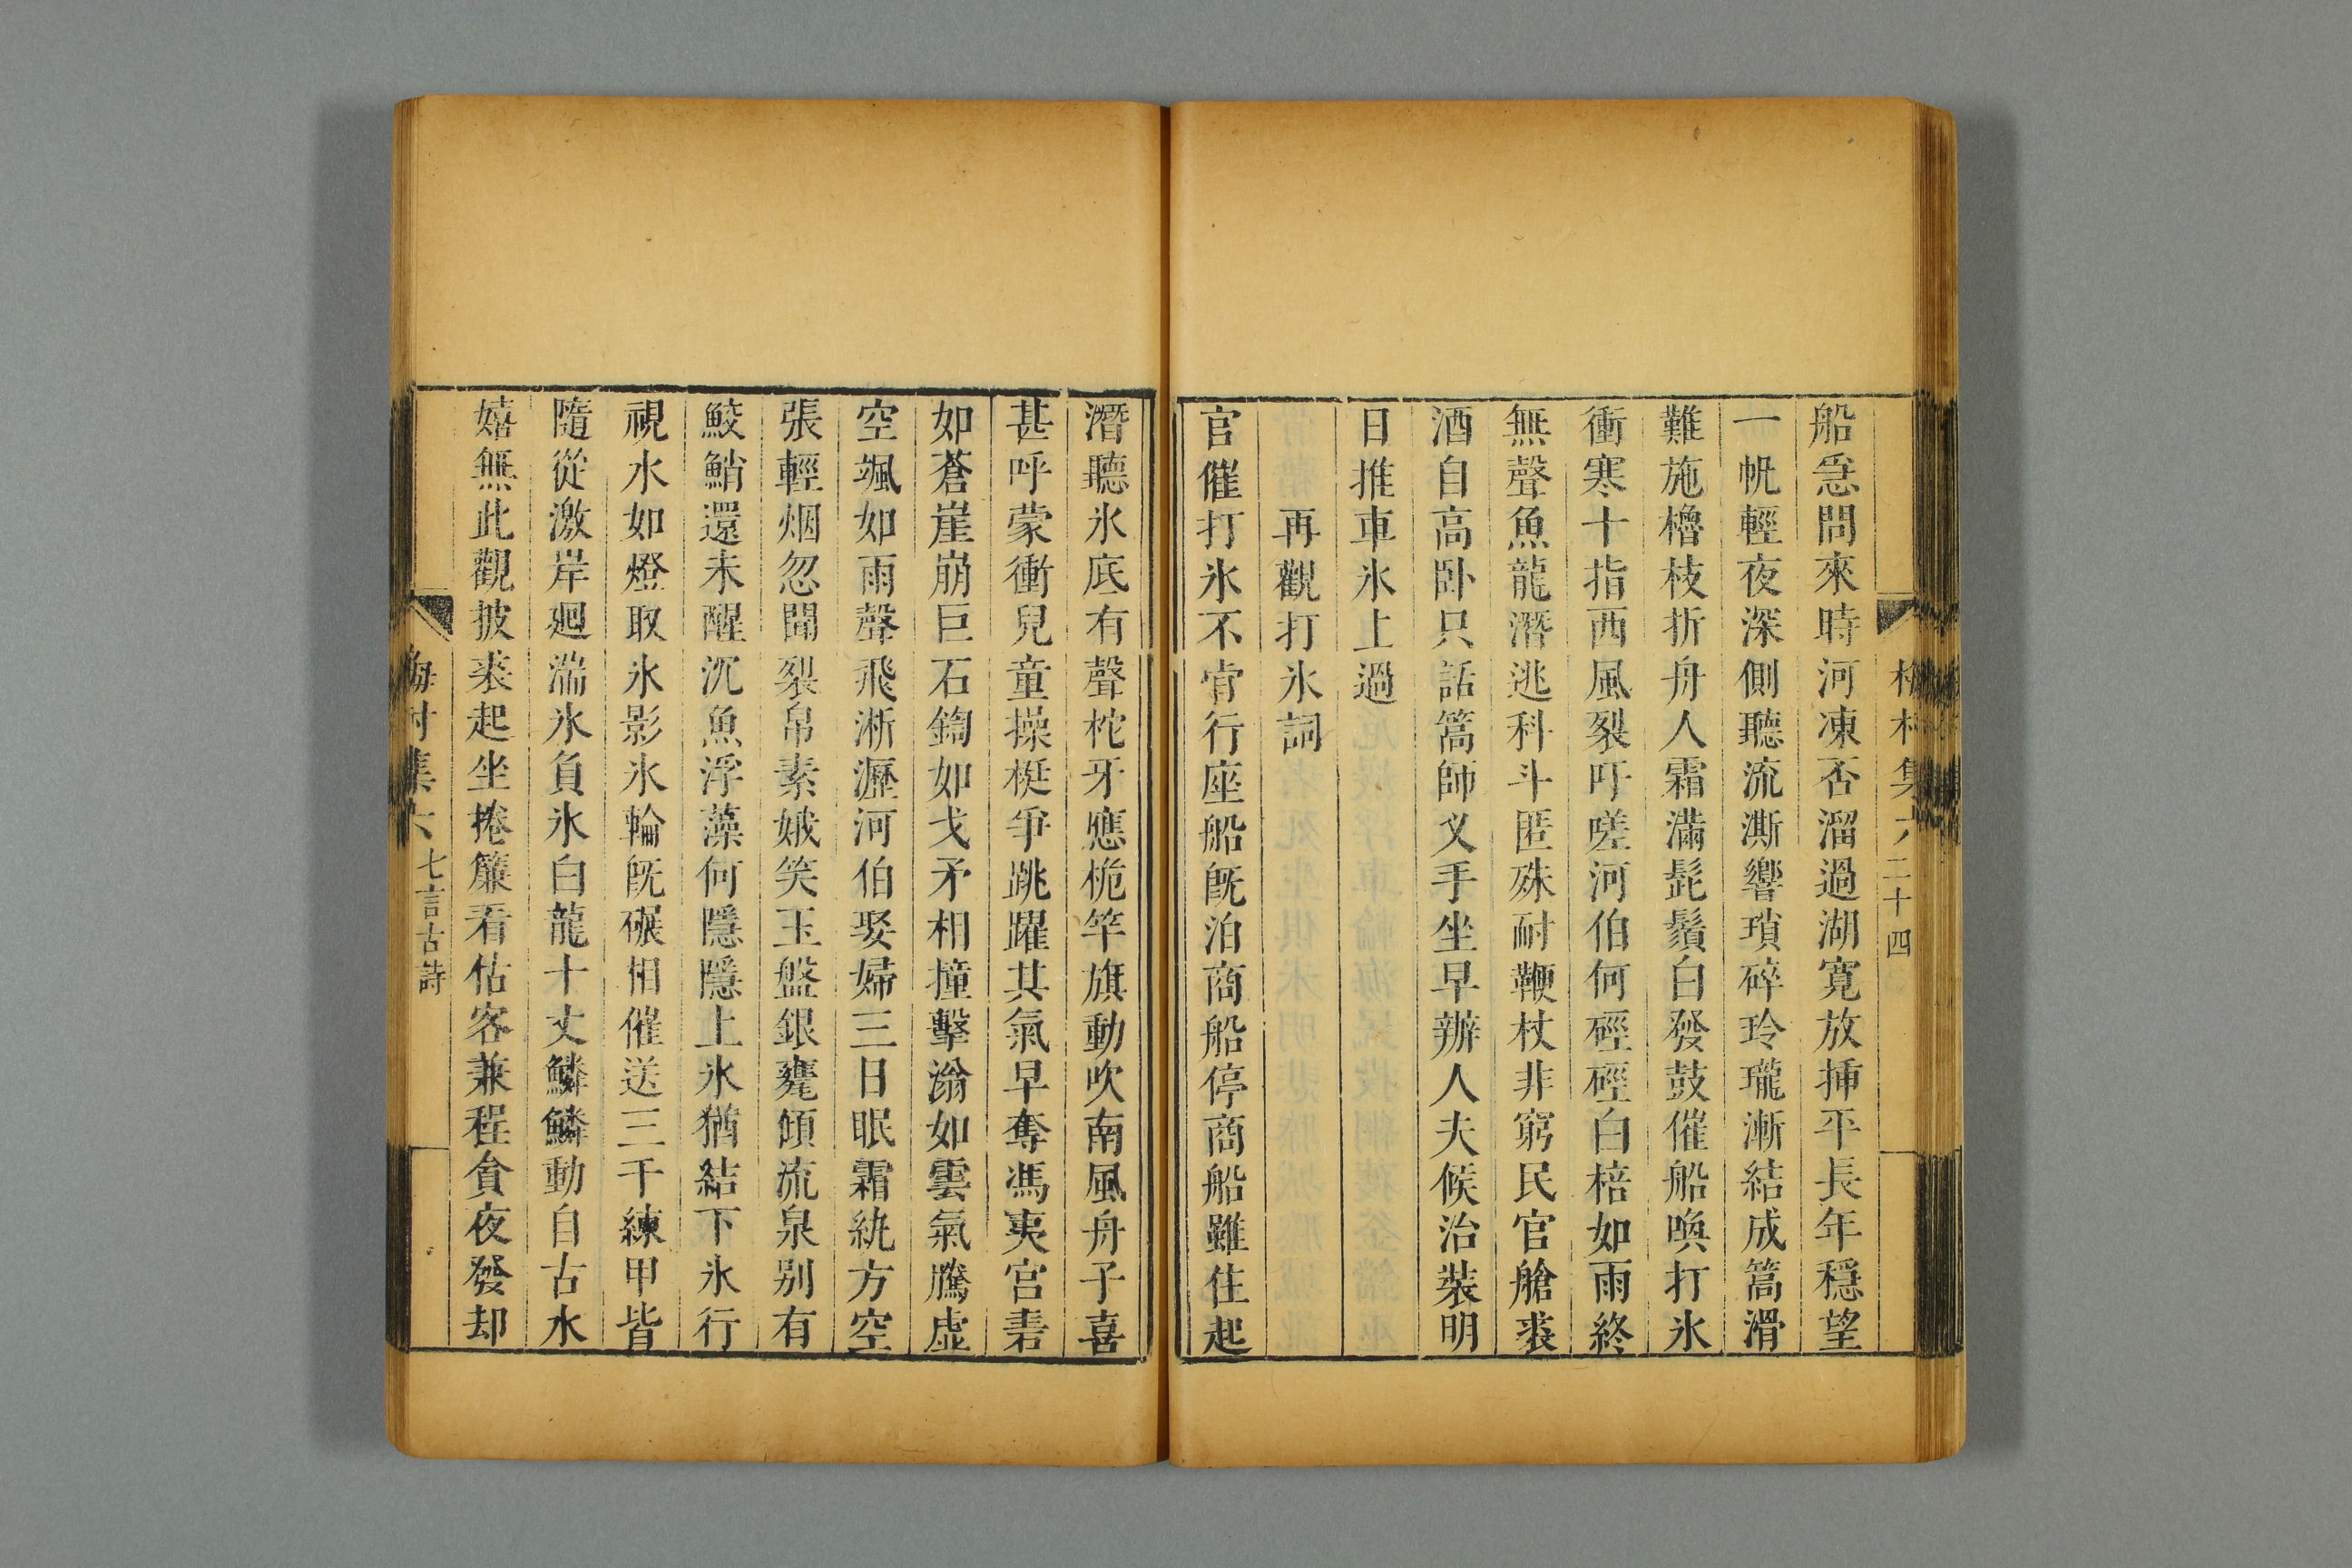 梅村集六 二十四
船急問來時河凍否溜過湖寬放揷平長年穩望
一帆輕夜深側聽流澌響瑣碎玲瓏漸結成篙滑
難施櫓枝折舟人霜滿髭鬚白發鼓催船喚打氷
衝寒十指西風裂吁嗟河伯何硜硜白棓如雨終
無聲魚龍潛逃科斗匿殊耐鞭杖非窮民官艙裘
酒自高卧只話篙師叉手坐早辦人夫候治裝明
日推車氷上過
再觀打氷詞
官催打氷不肯行座船旣泊商船停商船雖住起
潛聽氷底有聲柁牙應桅竿旗動吹南風舟子喜
甚呼蒙衝兒童操梃爭跳躍其氣早奪馮夷宮砉
如蒼崖崩巨石鍧如戈矛相撞擊滃如雲氣騰虛
空颯如雨聲飛淅瀝河伯娶婦三日眠霜紈方空
張輕烟忽聞裂帛素娥笑玉盤銀甕傾流泉別有
鮫鮹還未醒沉魚浮藻何隱隱上氷猶結下氷行
視水如燈取氷影氷輪旣碾相催送三千練甲皆
隨從激岸廻湍氷負氷白龍十丈鱗鱗動自古水
嬉無此觀披裘起坐捲簾看估客兼程貪夜發却
梅村集六 七言古詩